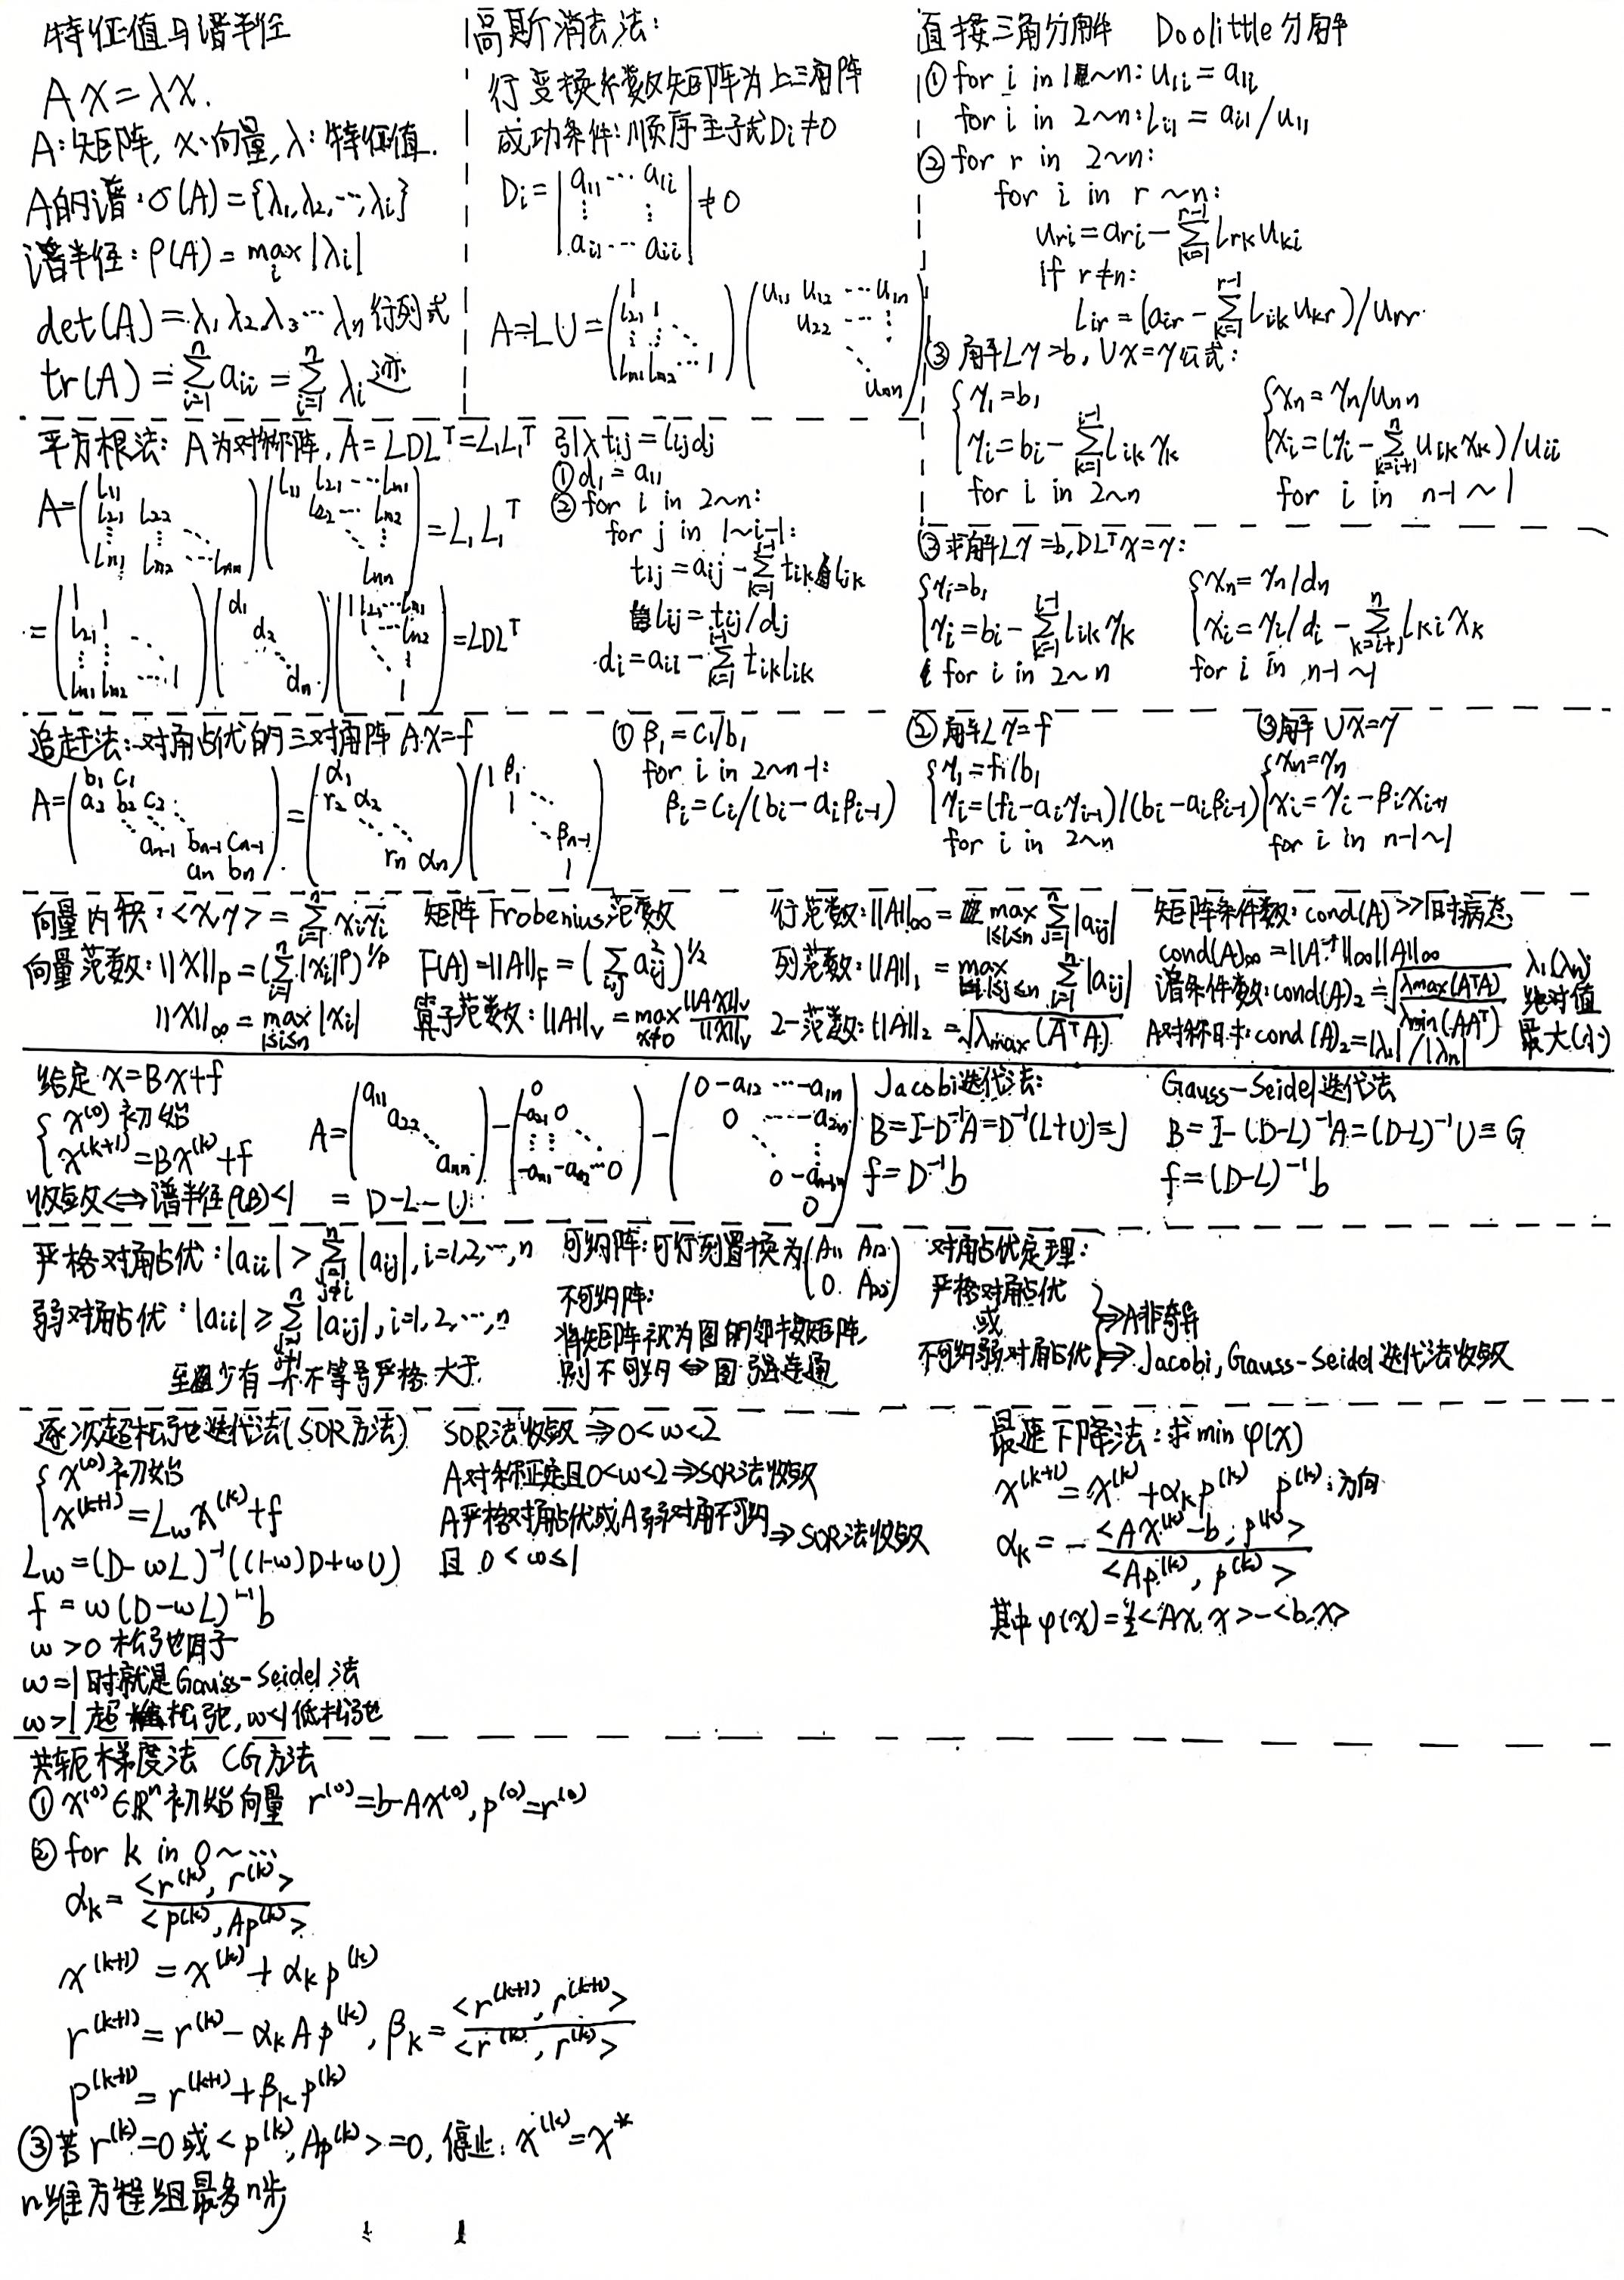 特征值与谱半径
Ax=λx.
A:矩阵, x:向量, λ:特征值.
A的谱:σ(A)={λ₁,λ₂,…,λᵢ}
谱半径:ρ(A)=max|λᵢ|
i
det(A)=λ₁λ₂λ₃…λₙ 行列式
tr(A)=∑ⁿᵢ₌₁aᵢᵢ=∑ⁿᵢ₌₁λᵢ 迹
高斯消去法:
行变换系数矩阵为上三角阵
成功条件:顺序主子式Dᵢ≠0
Dᵢ=|a₁₁…a₁ᵢ ⋮ ⋮ aᵢ₁…aᵢᵢ|≠0
A=LU=(1 l₂₁ 1 ⋮ ⋮ ⋱ lₙ₁ lₙ₂ … 1)(u₁₁ u₁₂ … u₁ₙ u₂₂ … ⋮ ⋱ uₙₙ)
直接三角分解 Doolittle分解
① for i in 1~n: u₁ᵢ=a₁ᵢ
for i in 2~n: lᵢ₁=aᵢ₁/u₁₁
② for r in 2~n:
for i in r~n:
uᵣᵢ=aᵣᵢ-∑ʳ⁻¹ₖ₌₁lᵣₖuₖᵢ
if r≠n:
lᵢᵣ=(aᵢᵣ-∑ʳ⁻¹ₖ₌₁lᵢₖuₖᵣ)/uᵣᵣ
③ 解Ly=b, Ux=y公式:
{y₁=b₁ {xₙ=yₙ/uₙₙ
yᵢ=bᵢ-∑ⁱ⁻¹ₖ₌₁lᵢₖyₖ xᵢ=(yᵢ-∑ⁿₖ₌ᵢ₊₁uᵢₖxₖ)/uᵢᵢ
for i in 2~n for i in n-1~1
平方根法: A为对称阵, A=LDLᵀ=L₁L₁ᵀ
A=(l₁₁ l₂₁ l₂₂ ⋮ ⋮ ⋱ lₙ₁ lₙ₂ … lₙₙ)(l₁₁ l₂₁ … lₙ₁ l₂₂ … lₙ₂ ⋱ ⋮ lₙₙ)=L₁L₁ᵀ
=(1 l₂₁ 1 ⋮ ⋮ ⋱ lₙ₁ lₙ₂ … 1)(d₁ d₂ ⋱ dₙ)(1 l₂₁ … lₙ₁ 1 … lₙ₂ ⋱ ⋮ 1)=LDLᵀ
引入tᵢⱼ=lᵢⱼdⱼ
① d₁=a₁₁
② for i in 2~n:
for j in 1~i-1:
tᵢⱼ=aᵢⱼ-∑ʲ⁻¹ₖ₌₁tᵢₖlⱼₖ
lᵢⱼ=tᵢⱼ/dⱼ
dᵢ=aᵢᵢ-∑ⁱ⁻¹ₖ₌₁tᵢₖlᵢₖ
③求解Ly=b, DLᵀx=y:
{y₁=b₁ {xₙ=yₙ/dₙ
yᵢ=bᵢ-∑ⁱ⁻¹ₖ₌₁lᵢₖyₖ xᵢ=yᵢ/dᵢ-∑ⁿₖ₌ᵢ₊₁lₖᵢxₖ
for i in 2~n for i in n-1~1
追赶法:对角占优的三对角阵Ax=f
A=(b₁ c₁ a₂ b₂ c₂ ⋱ ⋱ ⋱ aₙ₋₁ bₙ₋₁ cₙ₋₁ aₙ bₙ)=(α₁ r₂ α₂ ⋱ ⋱ rₙ αₙ)(1 β₁ 1 ⋱ ⋱ βₙ₋₁ 1)
① β₁=c₁/b₁
for i in 2~n-1:
βᵢ=cᵢ/(bᵢ-aᵢβᵢ₋₁)
② 解Ly=f
{y₁=f₁/b₁
yᵢ=(fᵢ-aᵢyᵢ₋₁)/(bᵢ-aᵢβᵢ₋₁)
for i in 2~n
③解Ux=y
{xₙ=yₙ
xᵢ=yᵢ-βᵢxᵢ₊₁
for i in n-1~1
向量内积:<x,y>=∑ⁿᵢ₌₁xᵢyᵢ
向量范数:||x||ₚ=(∑ⁿᵢ₌₁|xᵢ|ᵖ)^(1/p)
||x||∞=max|xᵢ|
1≤i≤n
矩阵Frobenius范数
F(A)=||A||_F=(∑ᵢ,ⱼaᵢⱼ²)^(1/2)
算子范数:||A||ᵥ=max ||Ax||ᵥ/||x||ᵥ
x≠0
行范数:||A||∞=max ∑ⁿⱼ₌₁|aᵢⱼ|
1≤i≤n
列范数:||A||₁=max ∑ⁿᵢ₌₁|aᵢⱼ|
1≤j≤n
2-范数:||A||₂=√λmax(AᵀA)
矩阵条件数:cond(A)>>1时病态
cond(A)∞=||A⁻¹||∞||A||∞
谱条件数:cond(A)₂=√(λmax(AᵀA)/λmin(AAᵀ))
A对称时:cond(A)₂=|λ₁|/|λₙ|
λ₁(λₙ)
绝对值
最大(小)
给定x=Bx+f
{x⁽⁰⁾初始
x⁽ᵏ⁺¹⁾=Bx⁽ᵏ⁾+f
收敛⟺谱半径ρ(B)<1
A=(a₁₁ a₂₂ ⋱ aₙₙ)-(0 -a₂₁ 0 ⋮ ⋮ ⋱ -aₙ₁ -aₙ₂ … 0)-(0 -a₁₂ … -a₁ₙ 0 … -a₂ₙ ⋱ ⋮ 0 -aₙ₋₁ₙ 0)
=D-L-U
Jacobi迭代法:
B=I-D⁻¹A=D⁻¹(L+U)≡J
f=D⁻¹b
Gauss-Seidel迭代法
B=I-(D-L)⁻¹A=(D-L)⁻¹U≡G
f=(D-L)⁻¹b
严格对角占优:|aᵢᵢ|>∑ⁿⱼ₌₁,ⱼ≠ᵢ|aᵢⱼ|, i=1,2,…,n
弱对角占优:|aᵢᵢ|≥∑ⁿⱼ₌₁,ⱼ≠ᵢ|aᵢⱼ|, i=1,2,…,n
至少有一个不等号严格大于
可约阵:可行列置换为(A₁₁ A₁₂ 0 A₂₂)
不可约阵:
将矩阵视为图的邻接矩阵,
则不可约⇔图强连通
对角占优定理:
严格对角占优
或 ⇒A非奇异
不可约弱对角占优 ⇒Jacobi, Gauss-Seidel迭代法收敛
逐次超松弛迭代法(SOR方法)
{x⁽⁰⁾初始
x⁽ᵏ⁺¹⁾=L_ωx⁽ᵏ⁾+f
L_ω=(D-ωL)⁻¹((1-ω)D+ωU)
f=ω(D-ωL)⁻¹b
ω>0松弛因子
ω=1时就是Gauss-Seidel法
ω>1超松弛, ω<1低松弛
SOR法收敛⇒0<ω<2
A对称正定且0<ω<2⇒SOR法收敛
A严格对角占优或A弱对角不可约⇒SOR法收敛
且0<ω≤1
最速下降法:求minφ(x)
x⁽ᵏ⁺¹⁾=x⁽ᵏ⁾+αₖp⁽ᵏ⁾ p⁽ᵏ⁾:方向
αₖ=-<Ax⁽ᵏ⁾-b, p⁽ᵏ⁾>/<Ap⁽ᵏ⁾, p⁽ᵏ⁾>
其中φ(x)=½<Ax,x>-<b,x>
共轭梯度法 CG方法
① x⁽⁰⁾∈Rⁿ初始向量 r⁽⁰⁾=b-Ax⁽⁰⁾, p⁽⁰⁾=r⁽⁰⁾
② for k in 0~…
αₖ=<r⁽ᵏ⁾, r⁽ᵏ⁾>/<p⁽ᵏ⁾, Ap⁽ᵏ⁾>
x⁽ᵏ⁺¹⁾=x⁽ᵏ⁾+αₖp⁽ᵏ⁾
r⁽ᵏ⁺¹⁾=r⁽ᵏ⁾-αₖAp⁽ᵏ⁾, βₖ=<r⁽ᵏ⁺¹⁾, r⁽ᵏ⁺¹⁾>/<r⁽ᵏ⁾, r⁽ᵏ⁾>
p⁽ᵏ⁺¹⁾=r⁽ᵏ⁺¹⁾+βₖp⁽ᵏ⁾
③若r⁽ᵏ⁾=0或<p⁽ᵏ⁾, Ap⁽ᵏ⁾>=0, 停止: x⁽ᵏ⁾=x*
n维方程组最多n步